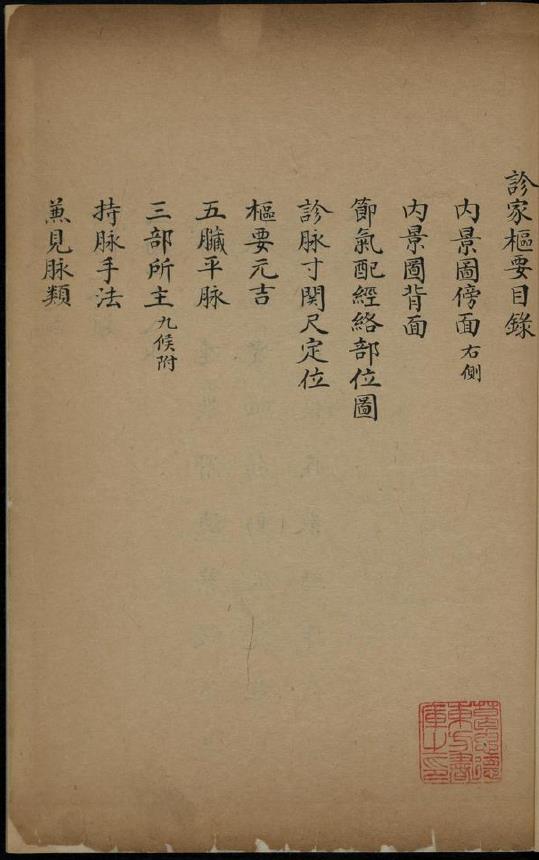 診家樞要目錄
内景圖傍面右側
内景圖背面
節氣配經絡部位圖
診脉寸関尺定位
樞要元吉
五臟平脉
三部所主九候附
持脉手法
兼見脉類
葛思德
東方書
庫之印